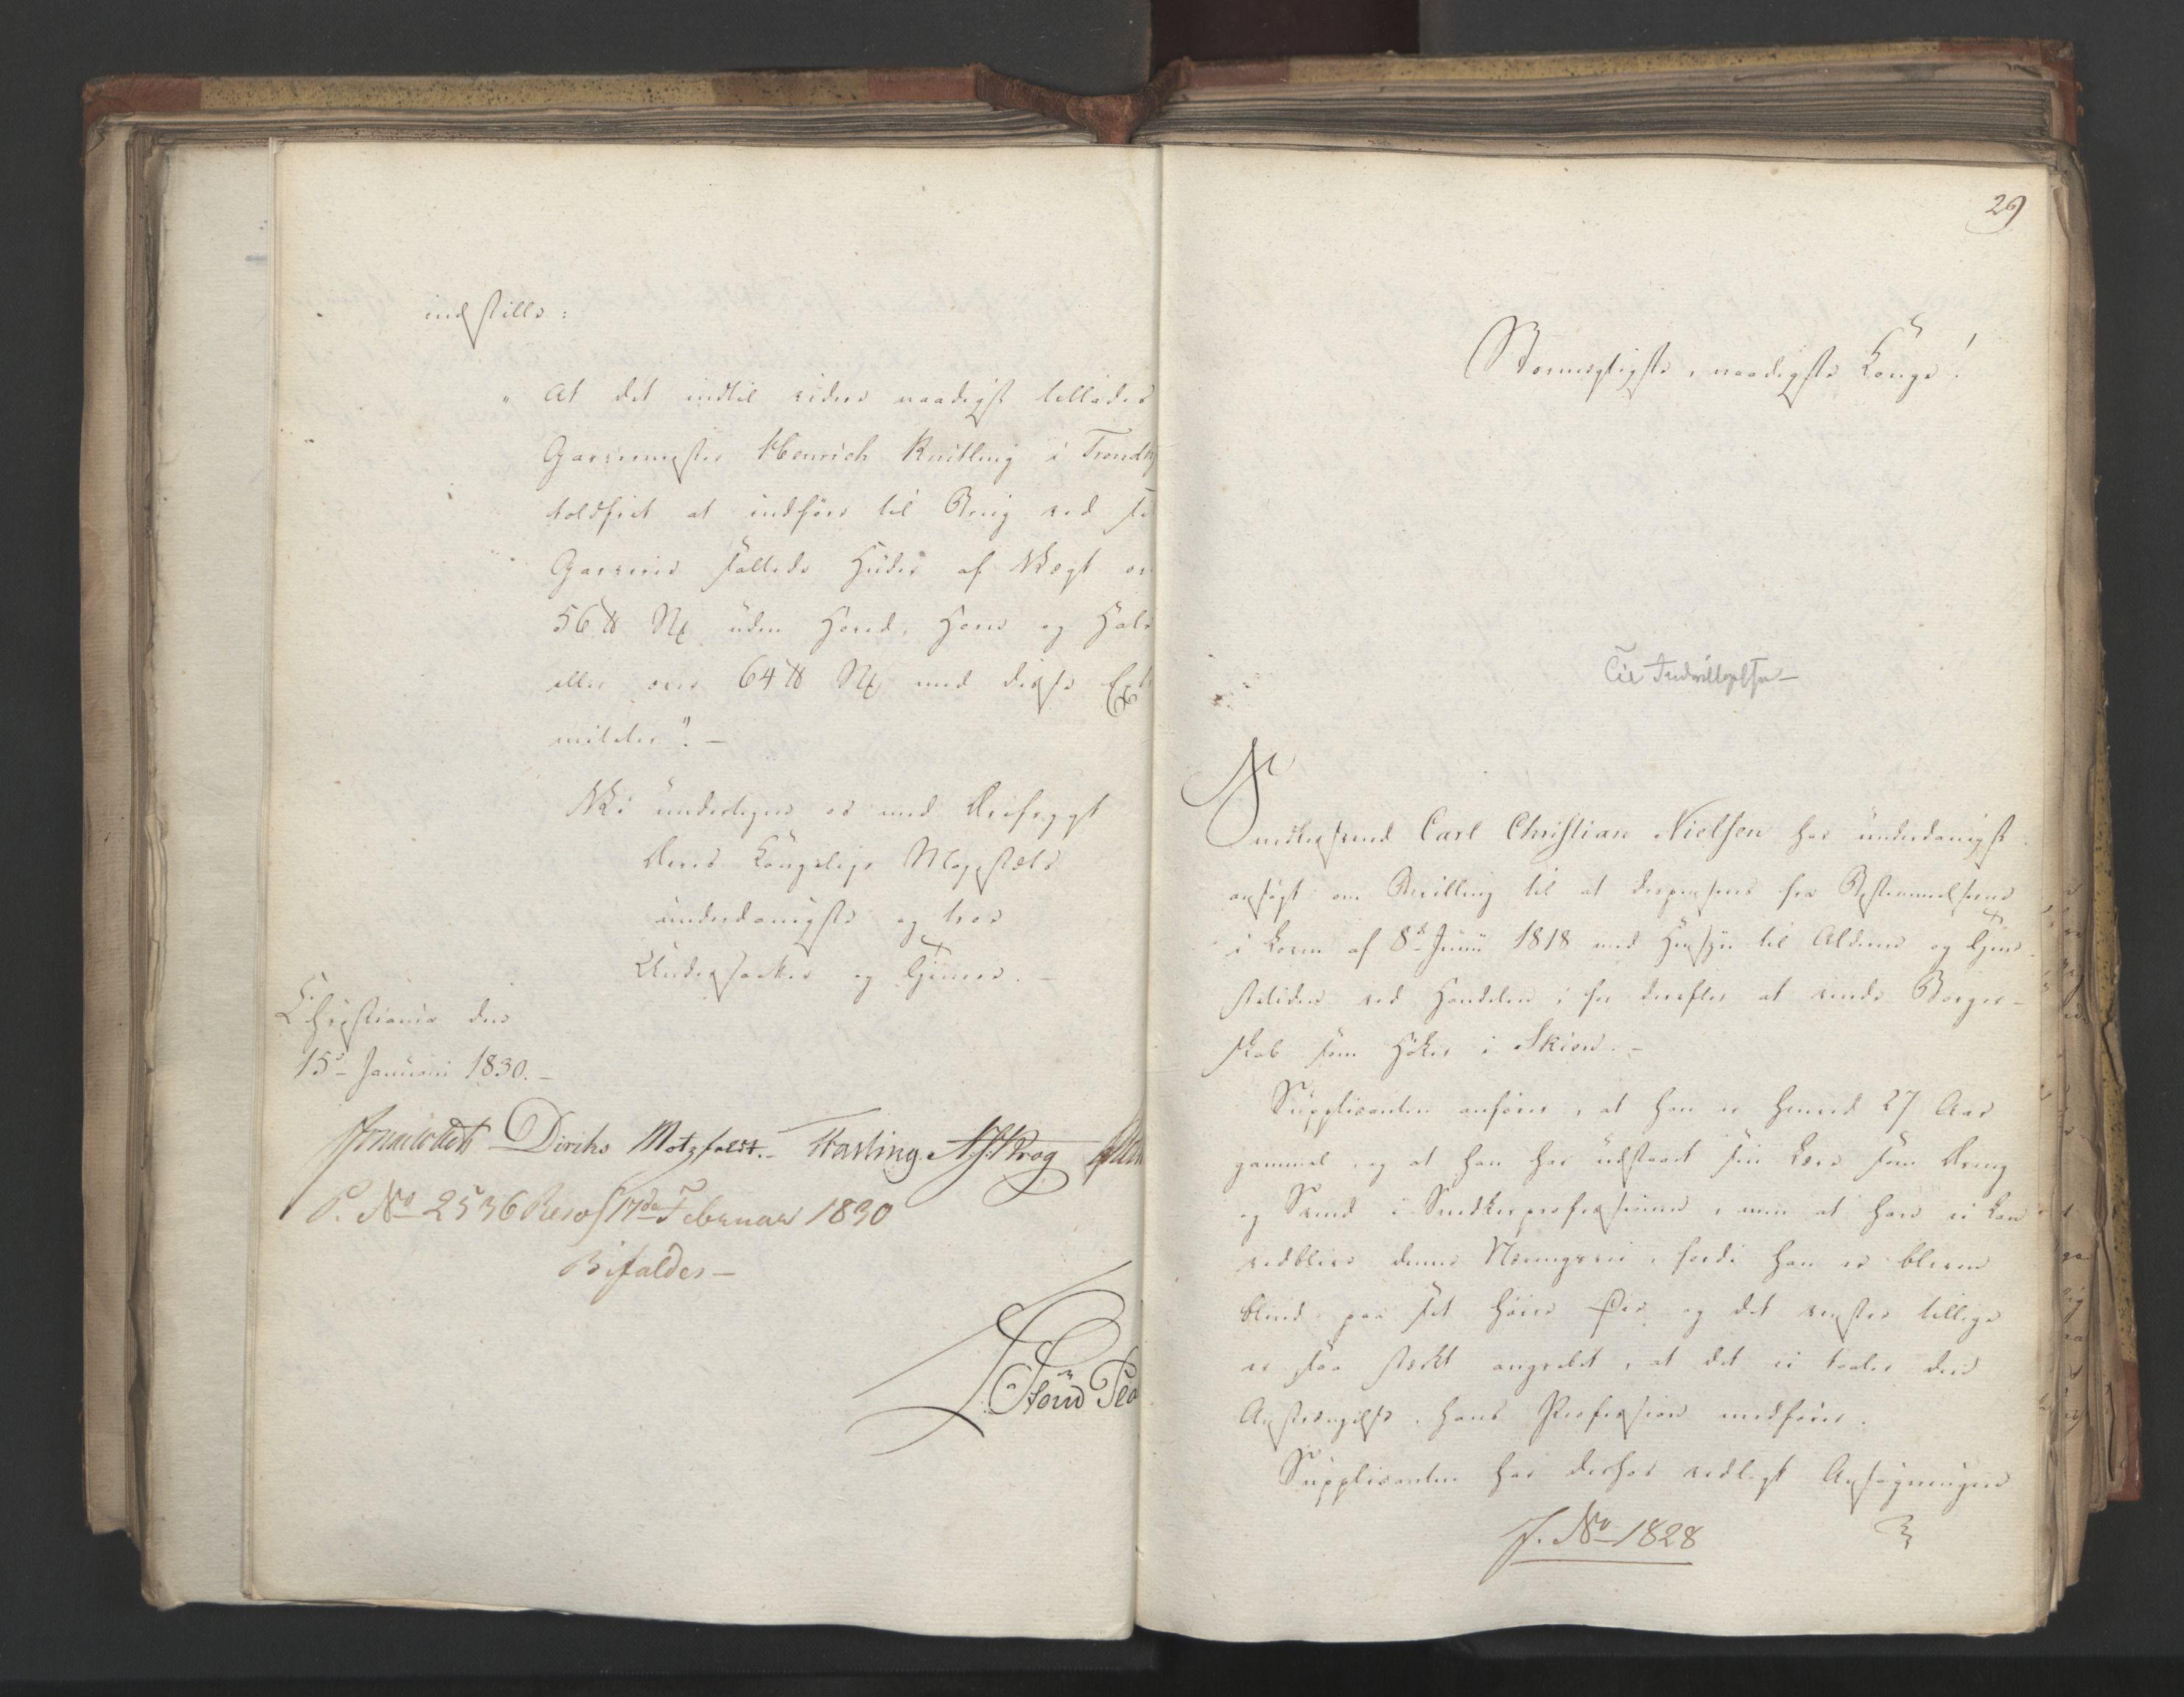 indstille:
"At det indtil videre naadigst tillades
Garvermester Henrich Knitling i Trondhj
toldfrit at indføre til Brug ved sit
Garverie saltede Huder af Vægt over
56 ℔ uden Hoved, Horn og Hale
eller over 64 ℔ med disse Extre-
miteter". –
Vi undertegne os med Ærefrygt
Deres Kongelige Majestæts
underdanigste og troe
Undersaatter og Tjenere. –
Christiania den
15de Januari 1830. –
Diriks Motzfeldt. – Fasting. Krog
P. No 2536 Resos 17de Februar 1830
Bifaldes –
29
Stormægtigste, naadigste Konge!
Til Indvilgelse –
Snedkersvend Carl Christian Nielsen har underdanigst
ansøgt om Bevilling til at dispenseres fra Bestemmelserne
i Loven af 8de Junii 1818 med Hensyn til Alderen og Tjene-
stetiden ved Handelen, for derefter at vinde Borger-
skab som Høker i Skien. –
Supplicanten anfører, at han er henved 27 Aar
gammel, og at han har udstaaet sin Lære som Dreng
og Svend i Snedkerprofessionen, men at han ei kan
vedblive denne Næringsvei, fordi han er bleven
blind paa sit høire Øie, og det venstre tillige
er saa stærkt angrebet, at det ei taaler den
Anstrengelse, hans Profession medfører.
Supplicanten har derhos vedlagt Ansøgningen
J. No 1828